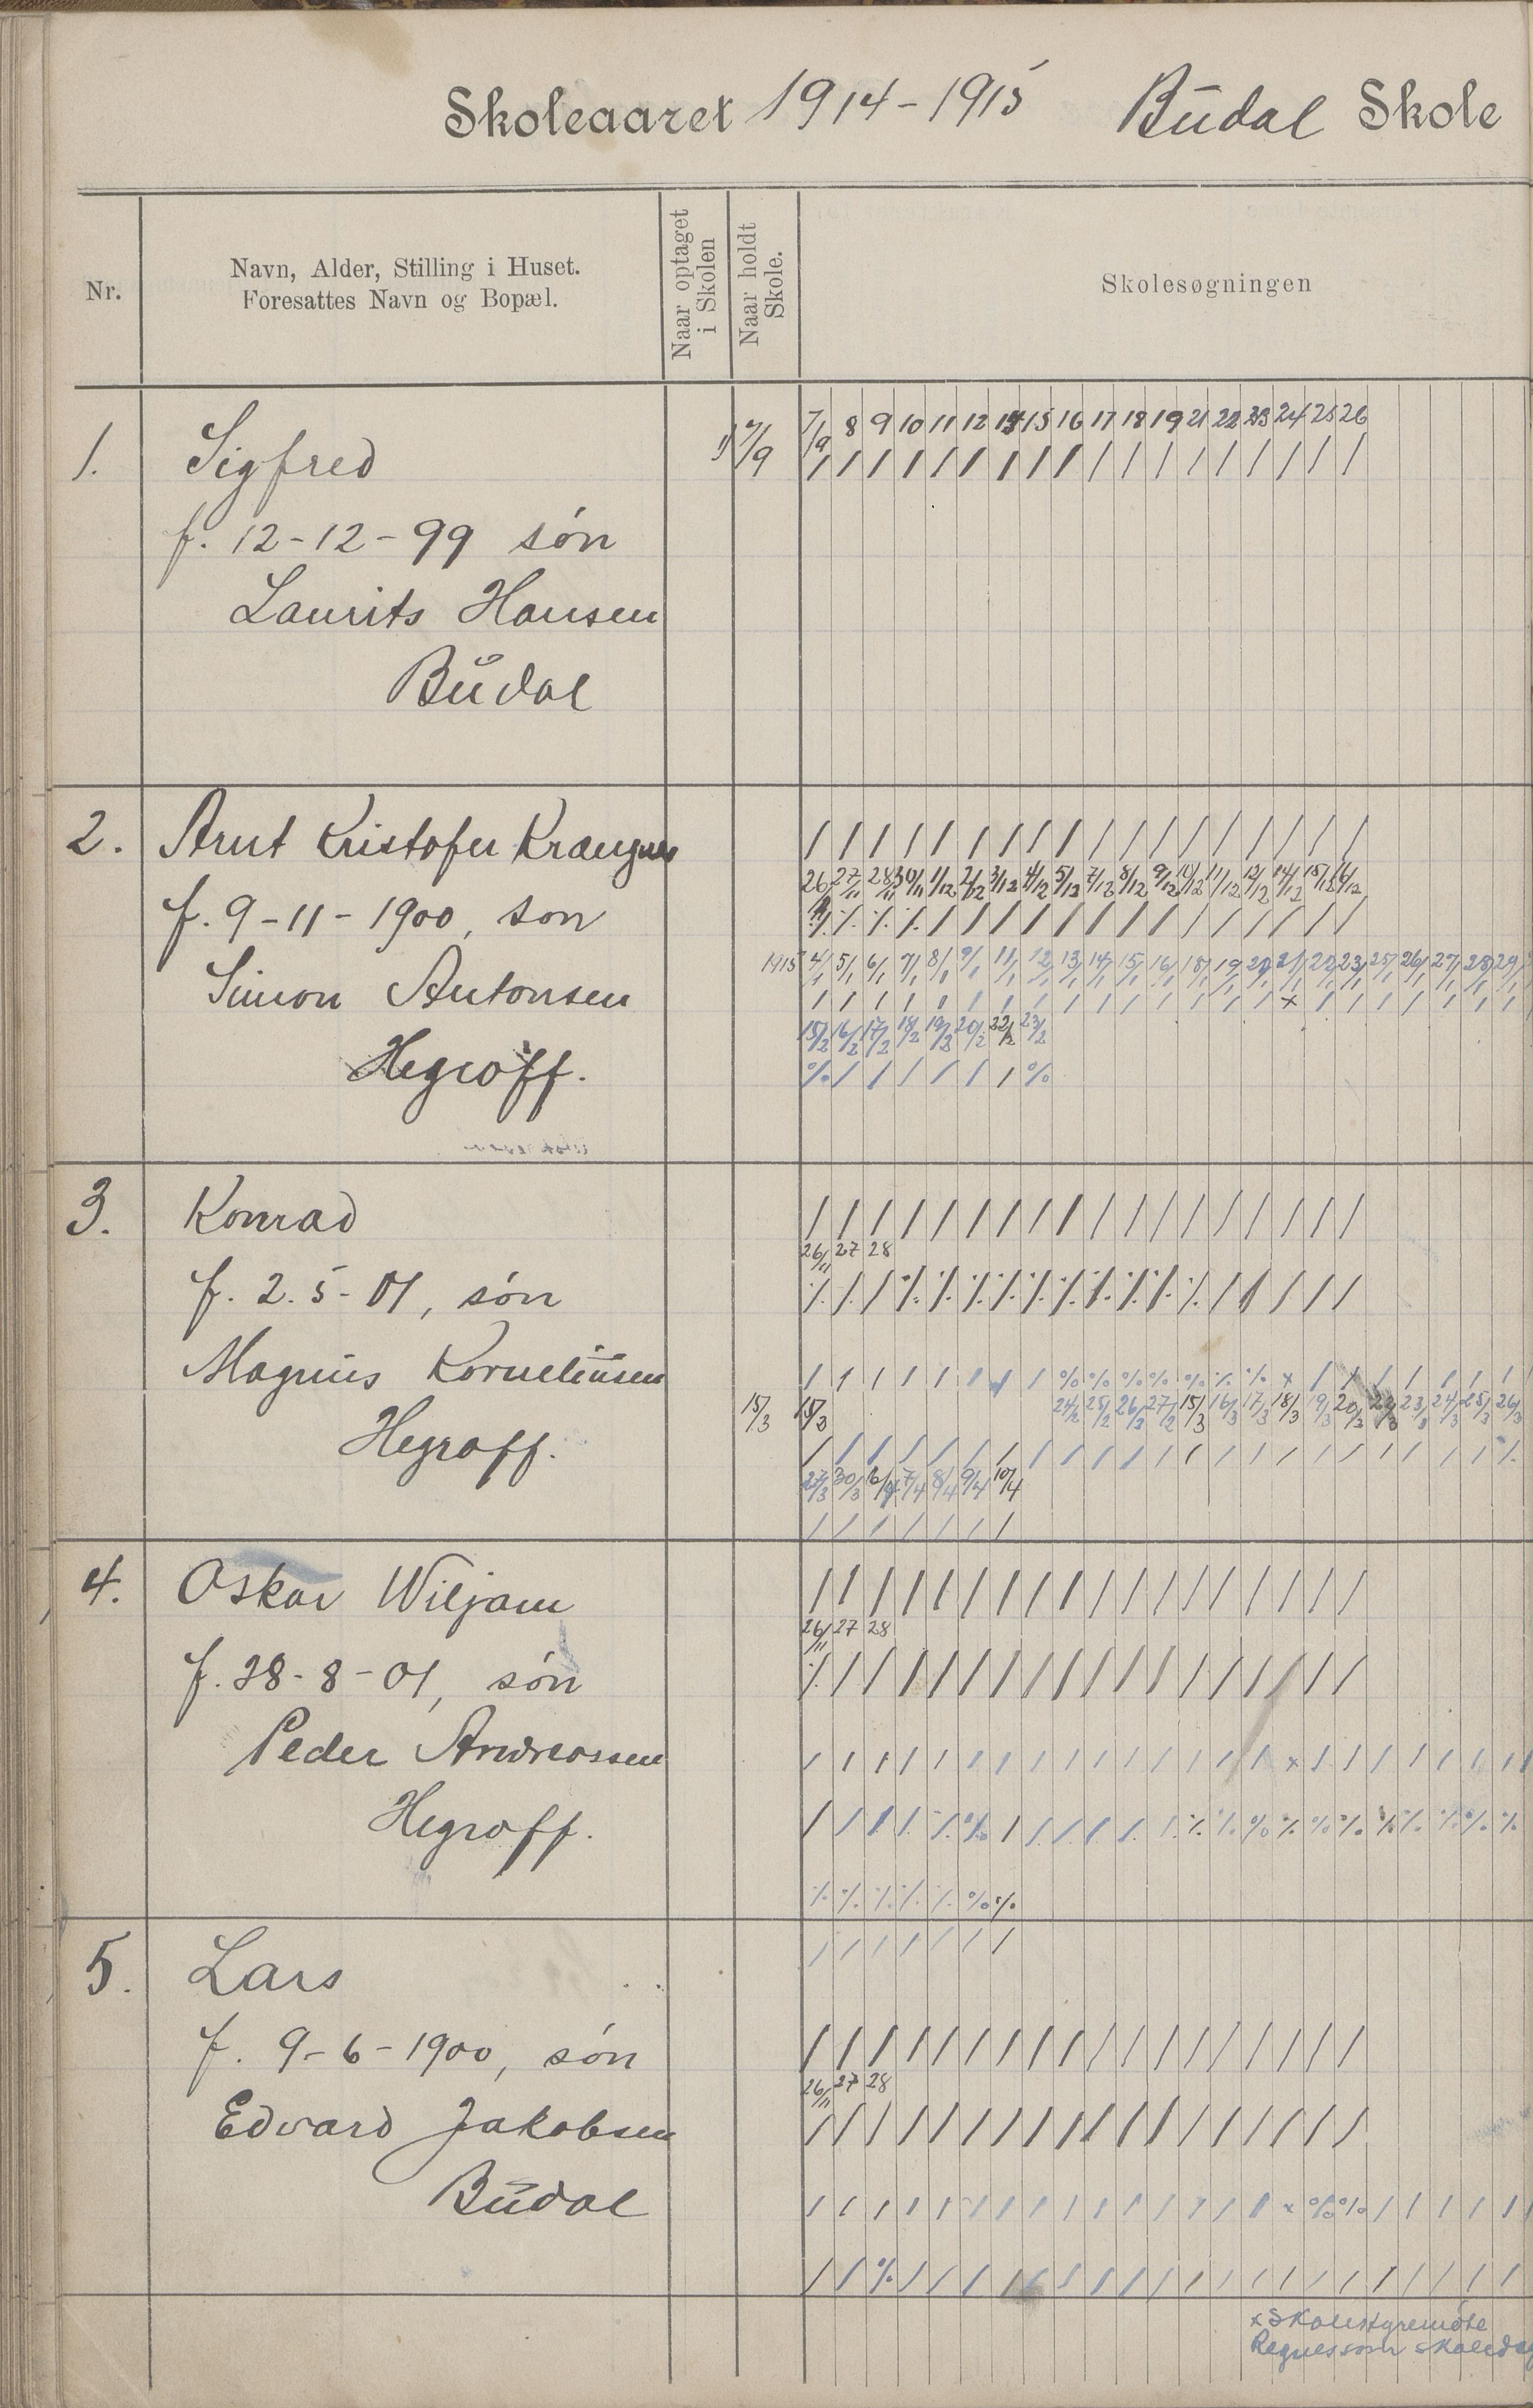 Skoleaaret 1914-1915 Büdal Skole
Nr.
Navn, Alder, Stilling i Huset.
Foresattes Navn og Bopæl.
Naar optaget
i Skolen
Naar holdt
Skole.
Skolesøgningen
7/9 7/9 8 9 10 11 12 14 15 16 17 18 19 21 22 23 24 25 26
1. Sigfred
f. 12-12-99 søn
Laurits Hansen
Büdal
2. Arnt Kristofer
26/11 27/11 28/11 30/11 1/12 2/12 3/12 4/12 5/12 7/12 8/12 9/12 10/12 11/12 12/12 14/12 15/12 16/12
f. 9-11-1900, son
1915 4/1 5/1 6/1 7/1 8/1 9/1 11/1 12/1 13/1 14/1 15/1 16/1 18/1 19/1 20/1 21/1 22/1 23/1 25/1 26/1 27/1 28/1 29/1
Simon Antonsen
15/2 16/2 17/2 18/2 19/2 20/2 22/2 23/2
Hegroff.
3. Konrad
26/11 27 28
f. 2.5-01, søn
Magnus Korneliusen
15/3 15/3 24/2 25/2 26/2 27/2 15/3 16/3 17/3 18/3 19/3 20/3 22/3 23/3 24/3 25/3 26/3
Hegroff.
27/3 30/3 16/4 7/4 8/4 9/4 10/4
4. Oskar Wiljam
26/11 27 28
f. 28-8-01, søn
Peder Andreassen
Hegroff.
5. Lars
f. 9-6-1900, søn
26/11 27 28
Edvard Jakobsen
Büdal
x Skolestyremöte
Regnes som skoledag